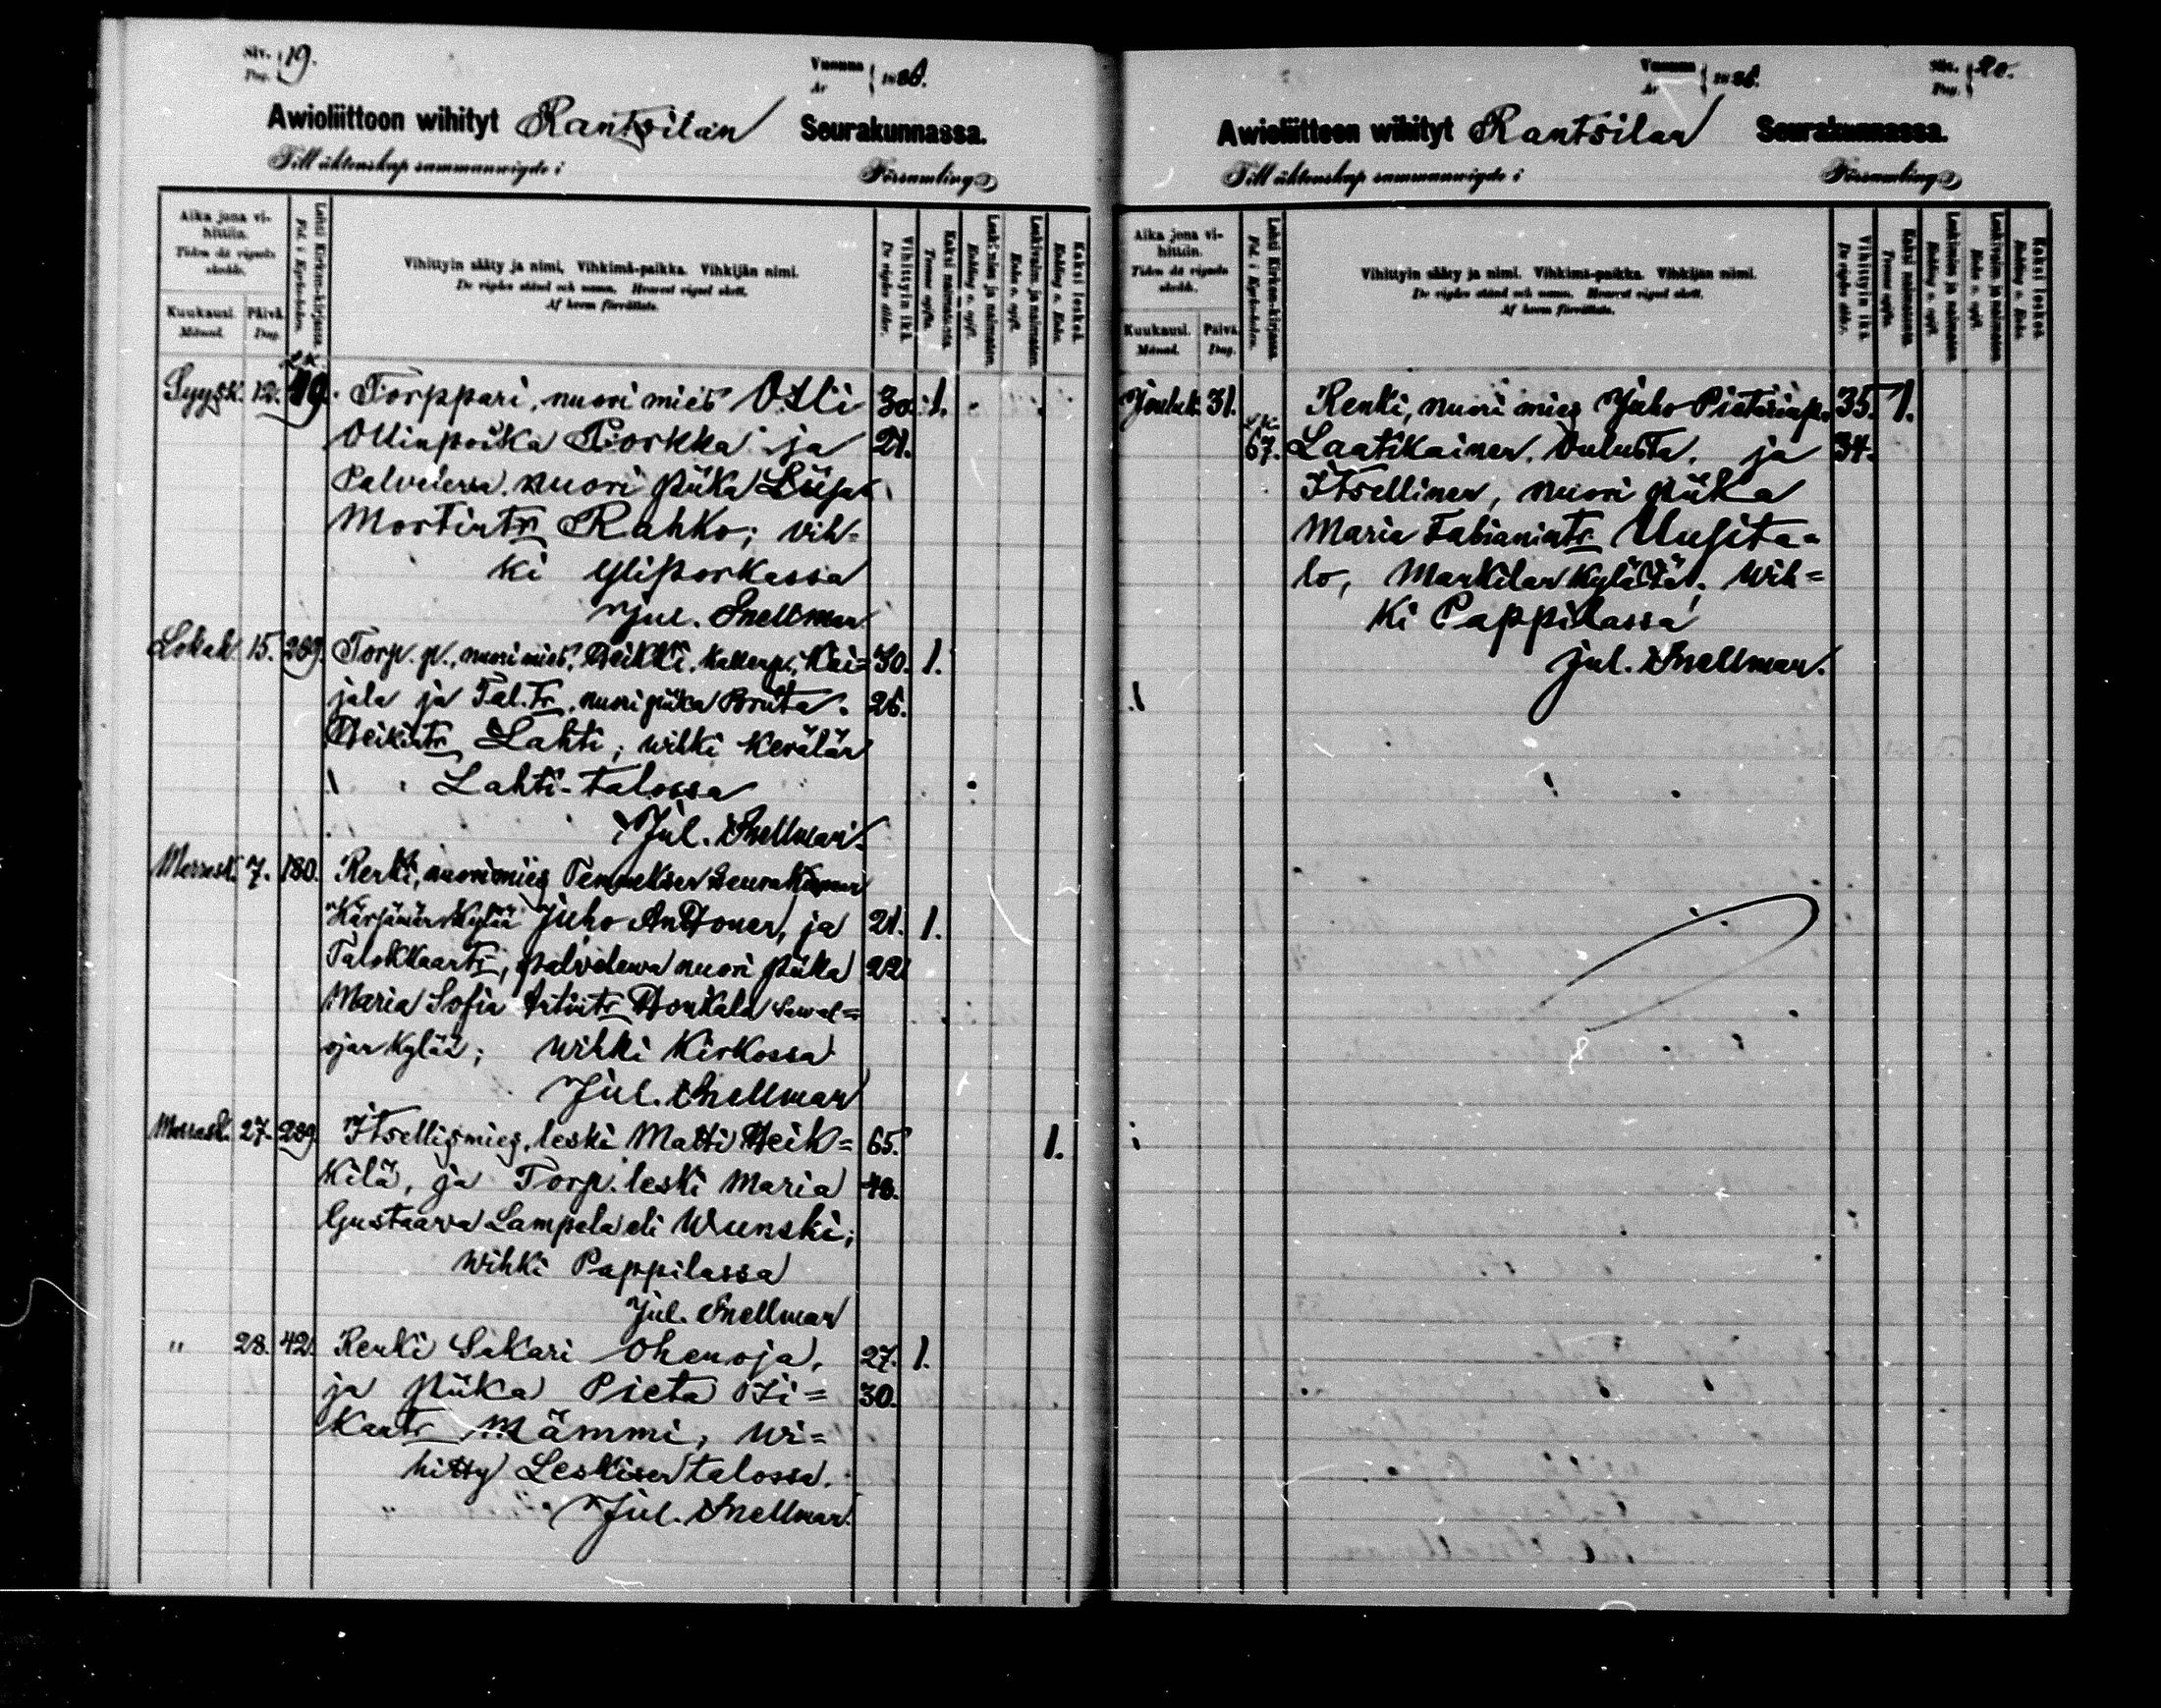 Siv. Pag. 19. Vuonna År 1886.
Awioliittoon wihityt Rantsilan Seurakunnassa.
Till äktenskap sammanwigde i Församling
Aika jona vihittiin. Tiden då vigseln skedde.
Kuukausi. Månad. Päivä. Dag.
Lehti Kirkon-kirjassa. Fol. i Kyrkoboken.
Vihittyin sääty ja nimi. Vihkimä-paikka. Vihkijän nimi.
De vigdes stånd och namn. Hvarest vigsel skett.
Af hvem förrättats.
Vihittyin ikä. De vigdes ålder.
Kaksi naimatonta. Tvenne ogifta.
Leskimies ja naimaton. Enkling o. ogift.
Leskivaim. ja naimaton. Enka o. ogift.
Kaksi leskeä. Enkling o. Enka.
Syysk. 12. LK. 19. Torppari, nuori mies Olli 30. 1.
Ollinpoika Porkka ja 21.
Palveleva nuori piika Liisa
Martintr Rahko; vih=
ki Yliporkassa
Jul. Snellman
Lokak. 15. 289. Torp. p., nuori mies, Heikki Kallenp. Kai= 30. 1.
jala ja Tal. Tr, nuori piika Briita 26.
Heikintr Lahti; wihki Kerälän
Lahti-talossa
Jul. Snellman.
Marrask. 7. 180. Renki, nuori mies Temmeksen Seurakunnan
Kärsämän kylää Juho Anttonen, ja 21. 1.
palveleva nuori piika 22
Maria Sofia Honkala Sawal=
ojan kylää; wihki Kirkossa
Jul. Snellman
Marrask. 27. 289. Itsellismies, leski Matti Heik= 65. 1.
kilä, ja Torp. leski Maria 48.
Gustaava Lampela eli Wunski;
wihki Pappilassa
Jul. Snellman
" 28. 42. Renki Sakari Ohenoja, 27. 1.
ja piika Pieta Ii= 30.
kantr Mämmi, wi=
hitty Leskisen talossa.
Jul. Snellman.
Vuonna År 1886. Siv. Pag. 20.
Awioliittoon wihityt Rantsilan Seurakunnassa.
Till äktenskap sammanwigde i Församling
Aika jona vihittiin. Tiden då vigseln skedde.
Kuukausi. Månad. Päivä. Dag.
Lehti Kirkon-kirjassa. Fol. i Kyrkoboken.
Vihittyin sääty ja nimi. Vihkimä-paikka. Vihkijän nimi.
De vigdes stånd och namn. Hvarest vigsel skett.
Af hvem förrättats.
Vihittyin ikä. De vigdes ålder.
Kaksi naimatonta. Tvenne ogifta.
Leskimies ja naimaton. Enkling o. ogift.
Leskivaim. ja naimaton. Enka o. ogift.
Kaksi leskeä. Enkling o. Enka.
Jouluk. 31. Renki, nuori mies Juho Pietarinp. 35. 1.
LK. 67. Laatikainen, Oulusta, ja 34.
Itsellinen, nuori piika
Maria Fabianintr Uusita=
lo, Mankilan kylästä; wih=
ki Pappilassa
Jul. Snellman.